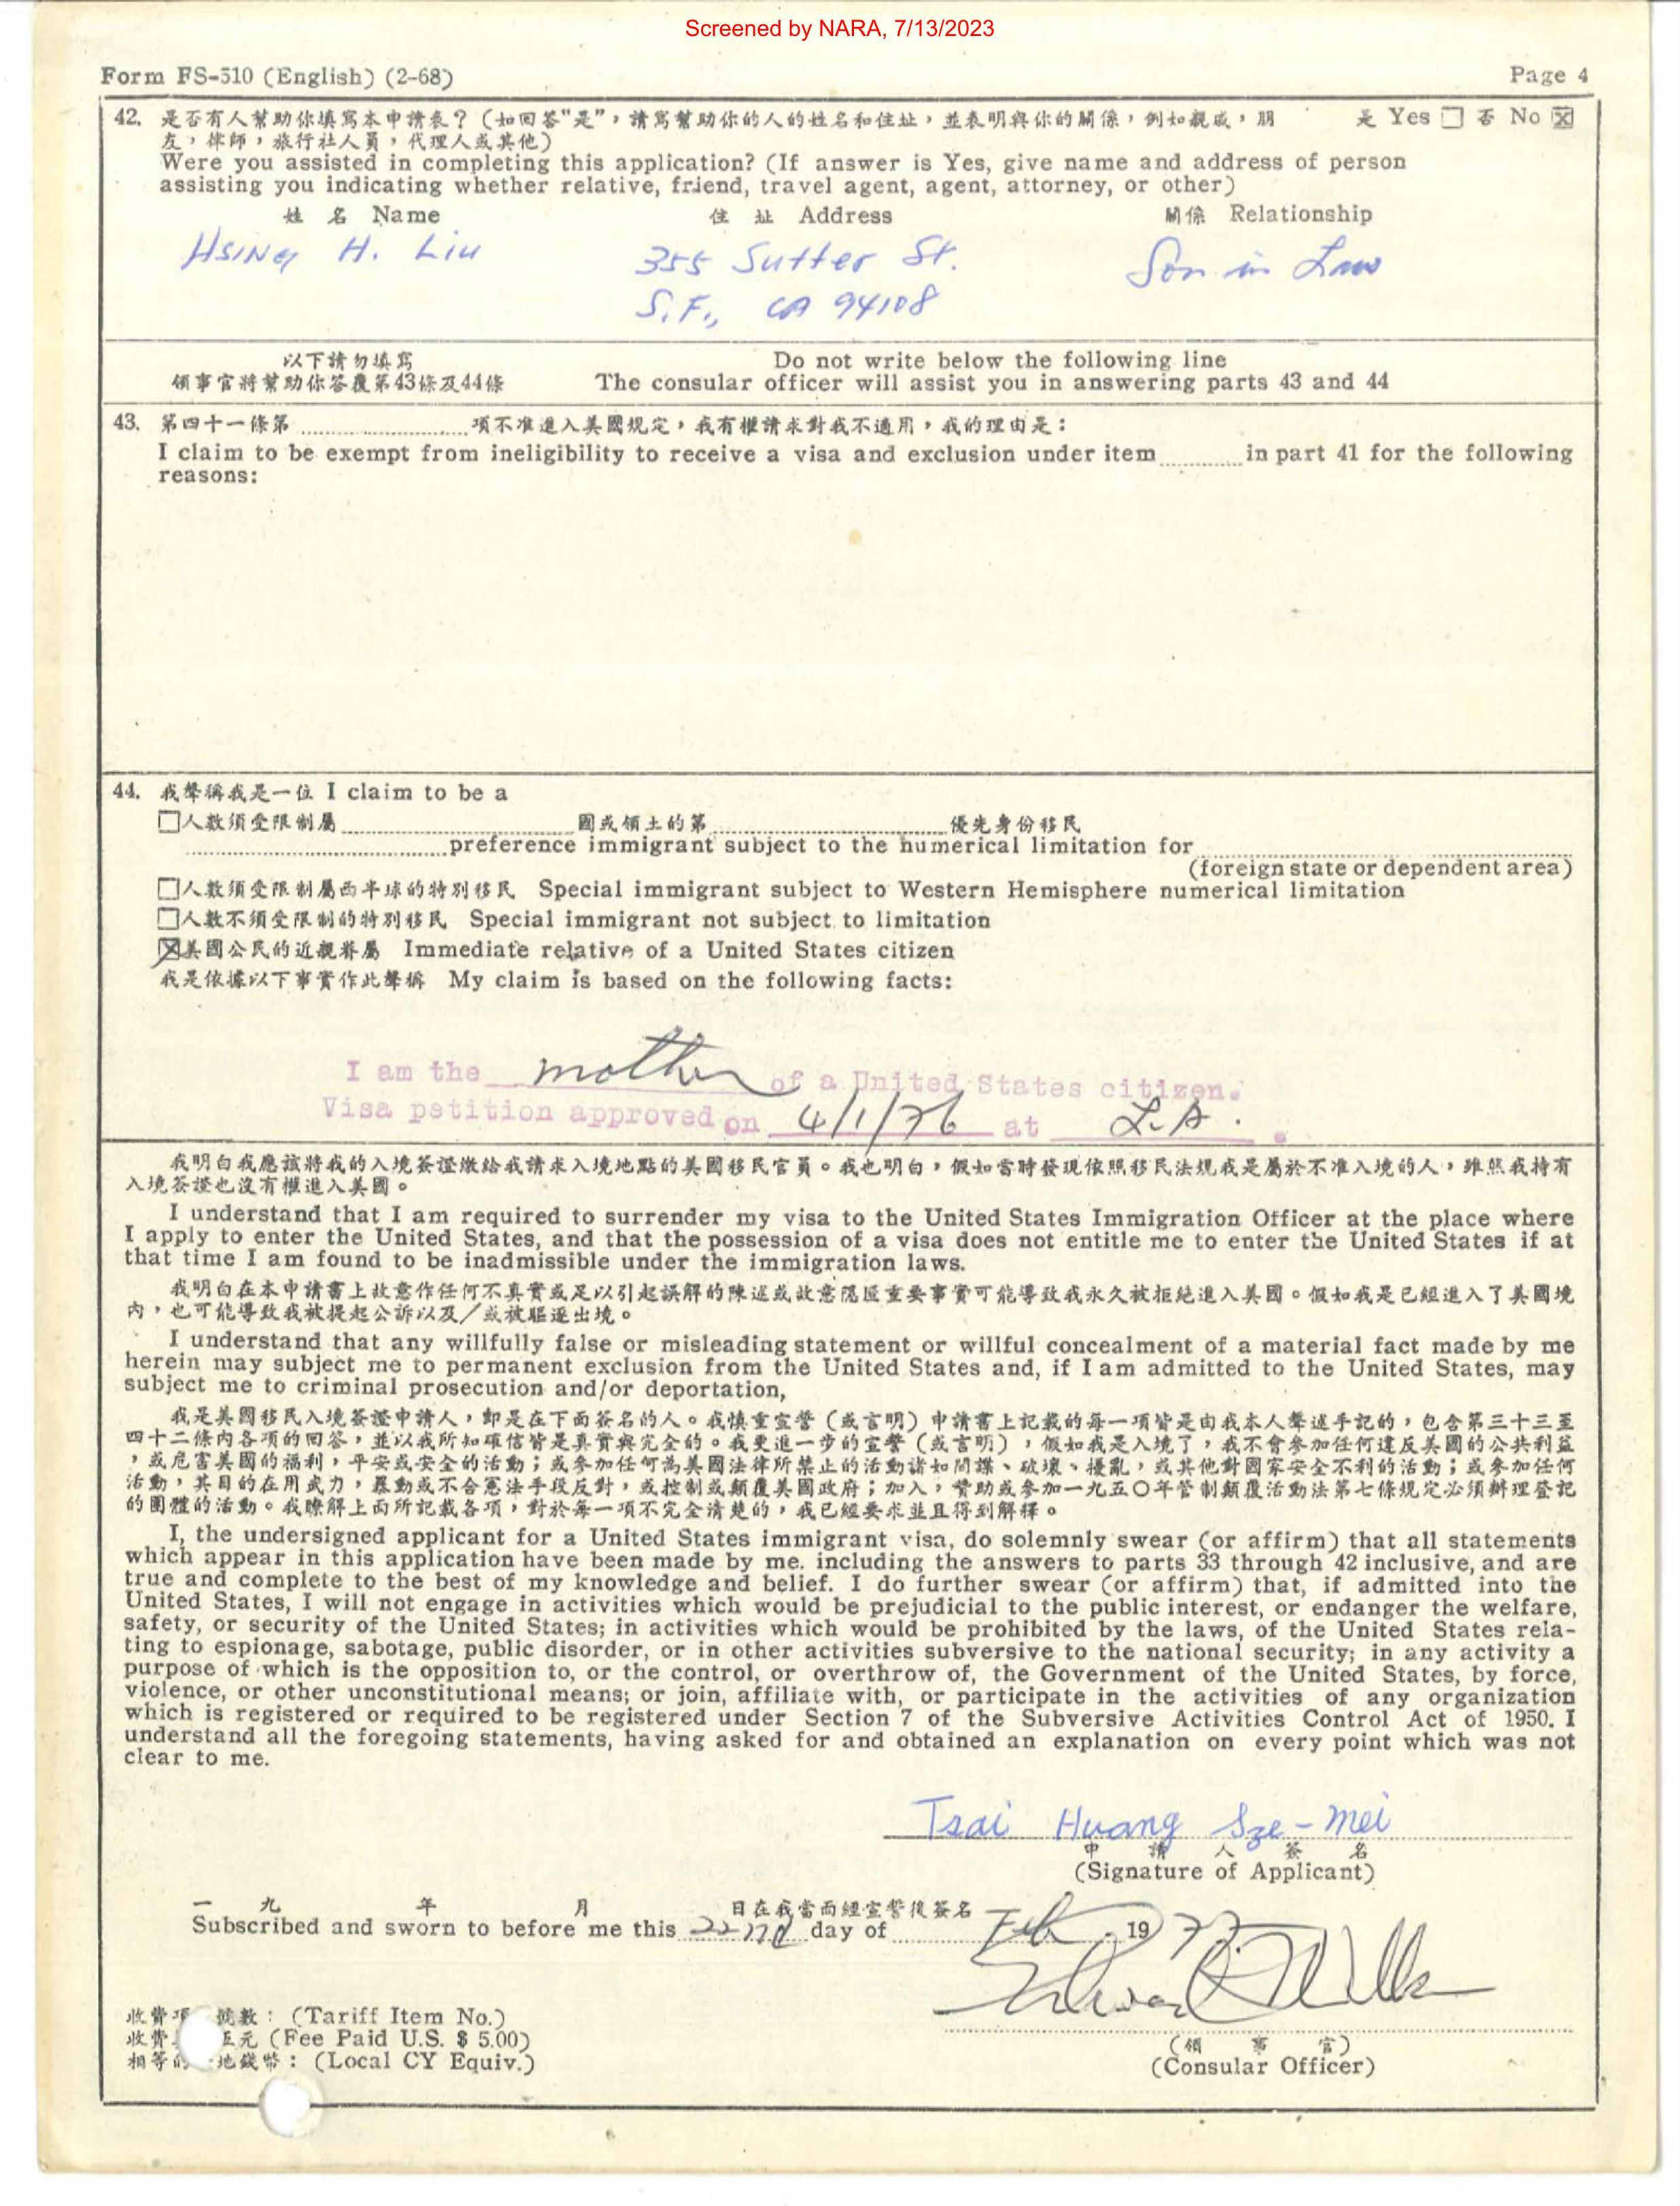 Screened by NARA, 7/13/2023
Form FS-510 (English) (2-68) Page 4
42. 是否有人幫助你填寫本申請表？(如回答"是"，請寫幫助你的人的姓名和住址，並表明與你的關係，例如親戚，朋 是 Yes ☐ 否 No ☒
友，律師，旅行社人員，代理人或其他)
Were you assisted in completing this application? (If answer is Yes, give name and address of person
assisting you indicating whether relative, friend, travel agent, agent, attorney, or other)
姓 名 Name 住 址 Address 關係 Relationship
HSING H. Liu 355 Sutter St. Son in Law
S.F., CA 94108
以下請勿填寫 Do not write below the following line
領事官將幫助你答覆第43條及44條 The consular officer will assist you in answering parts 43 and 44
43. 第四十一條第 項不准進入美國規定，我有權請求對我不適用，我的理由是：
I claim to be exempt from ineligibility to receive a visa and exclusion under item in part 41 for the following
reasons:
44. 我聲稱我是一位 I claim to be a
☐人數須受限制屬 國或領土的第 優先身份移民
preference immigrant subject to the numerical limitation for
(foreign state or dependent area)
☐人數須受限制屬西半球的特別移民 Special immigrant subject to Western Hemisphere numerical limitation
☐人數不須受限制的特別移民 Special immigrant not subject to limitation
☒美國公民的近親眷屬 Immediate relative of a United States citizen
我是依據以下事實作此聲稱 My claim is based on the following facts:
I am the mother of a United States citizen.
Visa petition approved on 4/1/76 at L.A.
我明白我應該將我的入境簽證繳給我請求入境地點的美國移民官員。我也明白，假如當時發現依照移民法規我是屬於不准入境的人，雖然我持有
入境簽證也沒有權進入美國。
I understand that I am required to surrender my visa to the United States Immigration Officer at the place where
I apply to enter the United States, and that the possession of a visa does not entitle me to enter the United States if at
that time I am found to be inadmissible under the immigration laws.
我明白在本申請書上故意作任何不真實或足以引起誤解的陳述或故意隱匿重要事實可能導致我永久被拒絕進入美國。假如我是已經進入了美國境
內，也可能導致我被提起公訴以及／或被驅逐出境。
I understand that any willfully false or misleading statement or willful concealment of a material fact made by me
herein may subject me to permanent exclusion from the United States and, if I am admitted to the United States, may
subject me to criminal prosecution and/or deportation,
我是美國移民入境簽證申請人，即是在下面簽名的人。我慎重宣誓（或言明）申請書上記載的每一項皆是由我本人聲述手記的，包含第三十三至
四十二條內各項的回答，並以我所知確信皆是真實與完全的。我更進一步的宣誓（或言明），假如我是入境了，我不會參加任何違反美國的公共利益
，或危害美國的福利，平安或安全的活動；或參加任何為美國法律所禁止的活動諸如間諜、破壞、擾亂，或其他對國家安全不利的活動；或參加任何
活動，其目的在用武力，暴動或不合憲法手段反對，或控制或顛覆美國政府；加入，贊助或參加一九五〇年管制顛覆活動法第七條規定必須辦理登記
的團體的活動。我瞭解上面所記載各項，對於每一項不完全清楚的，我已經要求並且得到解釋。
I, the undersigned applicant for a United States immigrant visa, do solemnly swear (or affirm) that all statements
which appear in this application have been made by me. including the answers to parts 33 through 42 inclusive, and are
true and complete to the best of my knowledge and belief. I do further swear (or affirm) that, if admitted into the
United States, I will not engage in activities which would be prejudicial to the public interest, or endanger the welfare,
safety, or security of the United States; in activities which would be prohibited by the laws, of the United States rela-
ting to espionage, sabotage, public disorder, or in other activities subversive to the national security; in any activity a
purpose of which is the opposition to, or the control, or overthrow of, the Government of the United States, by force,
violence, or other unconstitutional means; or join, affiliate with, or participate in the activities of any organization
which is registered or required to be registered under Section 7 of the Subversive Activities Control Act of 1950. I
understand all the foregoing statements, having asked for and obtained an explanation on every point which was not
clear to me.
Tsai Huang Sze-mei
申 請 人 簽 名
(Signature of Applicant)
一 九 年 月 日在我當面經宣誓後簽名
Subscribed and sworn to before me this 22nd day of Feb 1977
收費項 號數：(Tariff Item No.)
收費 伍元 (Fee Paid U.S. $ 5.00)
相等的 地錢幣：(Local CY Equiv.)
(領 事 官)
(Consular Officer)